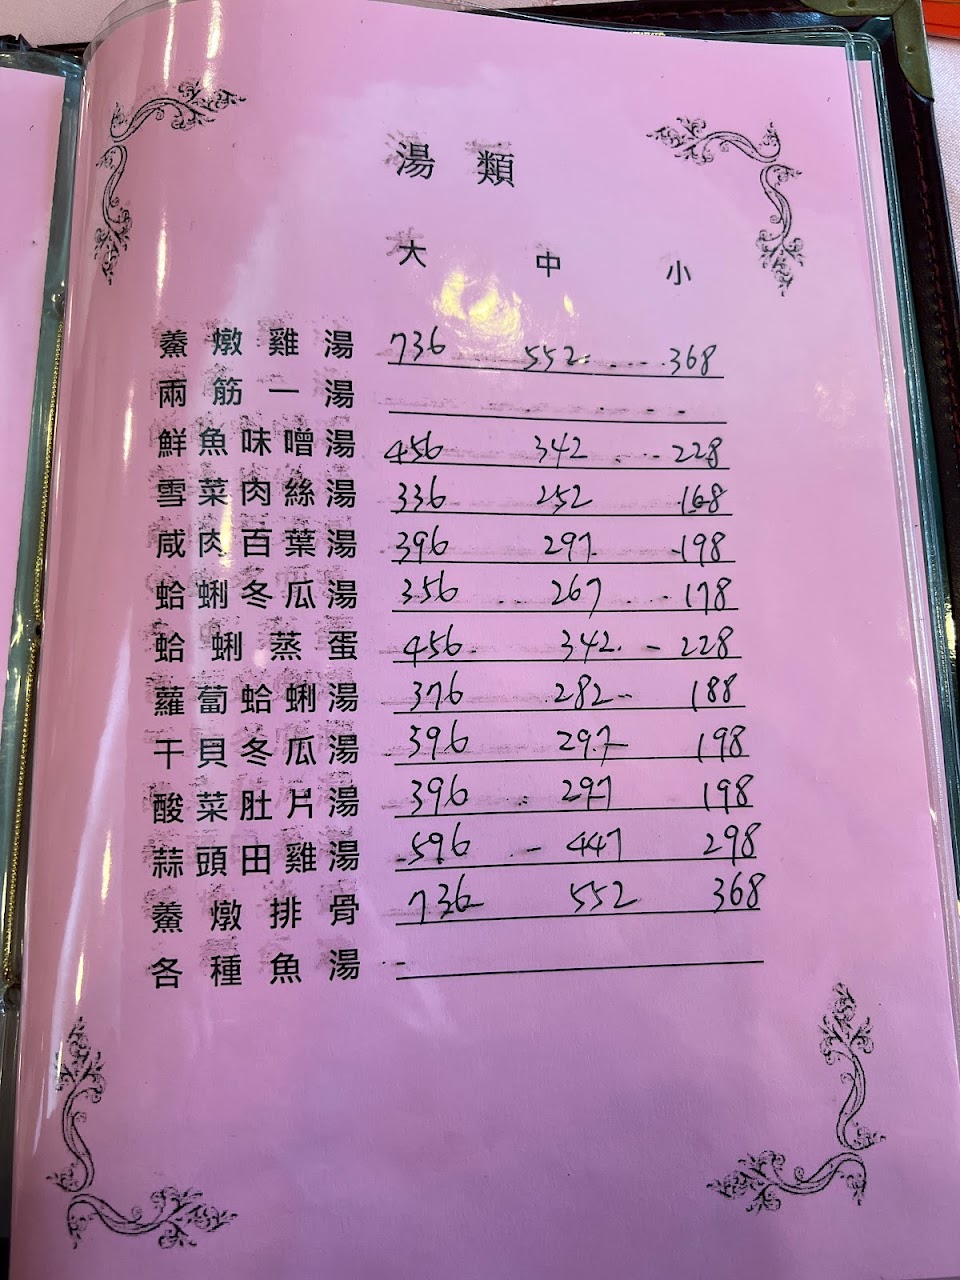 湯類
大 中 小
鯗燉雞湯 736 552 368
兩筋一湯
鮮魚味噌湯 456 342 228
雪菜肉絲湯 336 252 168
咸肉百葉湯 396 297 198
蛤蜊冬瓜湯 356 267 178
蛤蜊蒸蛋 456 342 228
蘿蔔蛤蜊湯 376 282 188
干貝冬瓜湯 396 297 198
酸菜肚片湯 396 297 198
蒜頭田雞湯 596 447 298
鯗燉排骨 736 552 368
各種魚湯